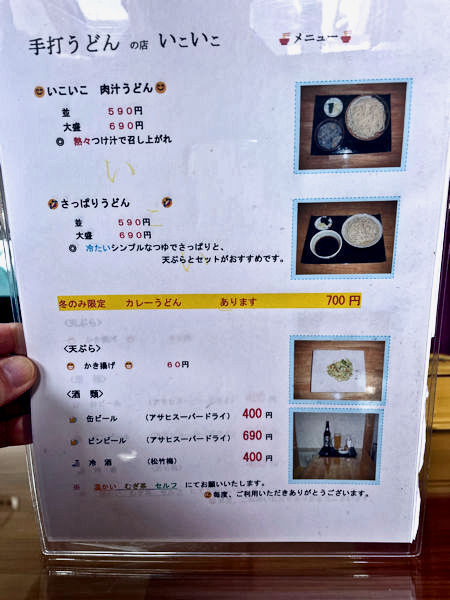 手打うどん の店 いこいこ メニュー
いこいこ 肉汁うどん
並 590円
大盛 690円
◎ 熱々つけ汁で召し上がれ
い
さっぱりうどん
こ
並 590円
大盛 690円
◎ 冷たいシンプルなつゆでさっぱりと、
い
天ぷらとセットがおすすめです。
冬のみ限定 カレーうどん あります 700円
<天ぷら>
かき揚げ 60円
<酒 類>
缶ビール (アサヒスーパードライ) 400円
ビンビール (アサヒスーパードライ) 690円
冷 酒 (松竹梅) 400円
※ 温かい むぎ茶 セルフ にてお願いいたします。
毎度、ご利用いただきありがとうございます。